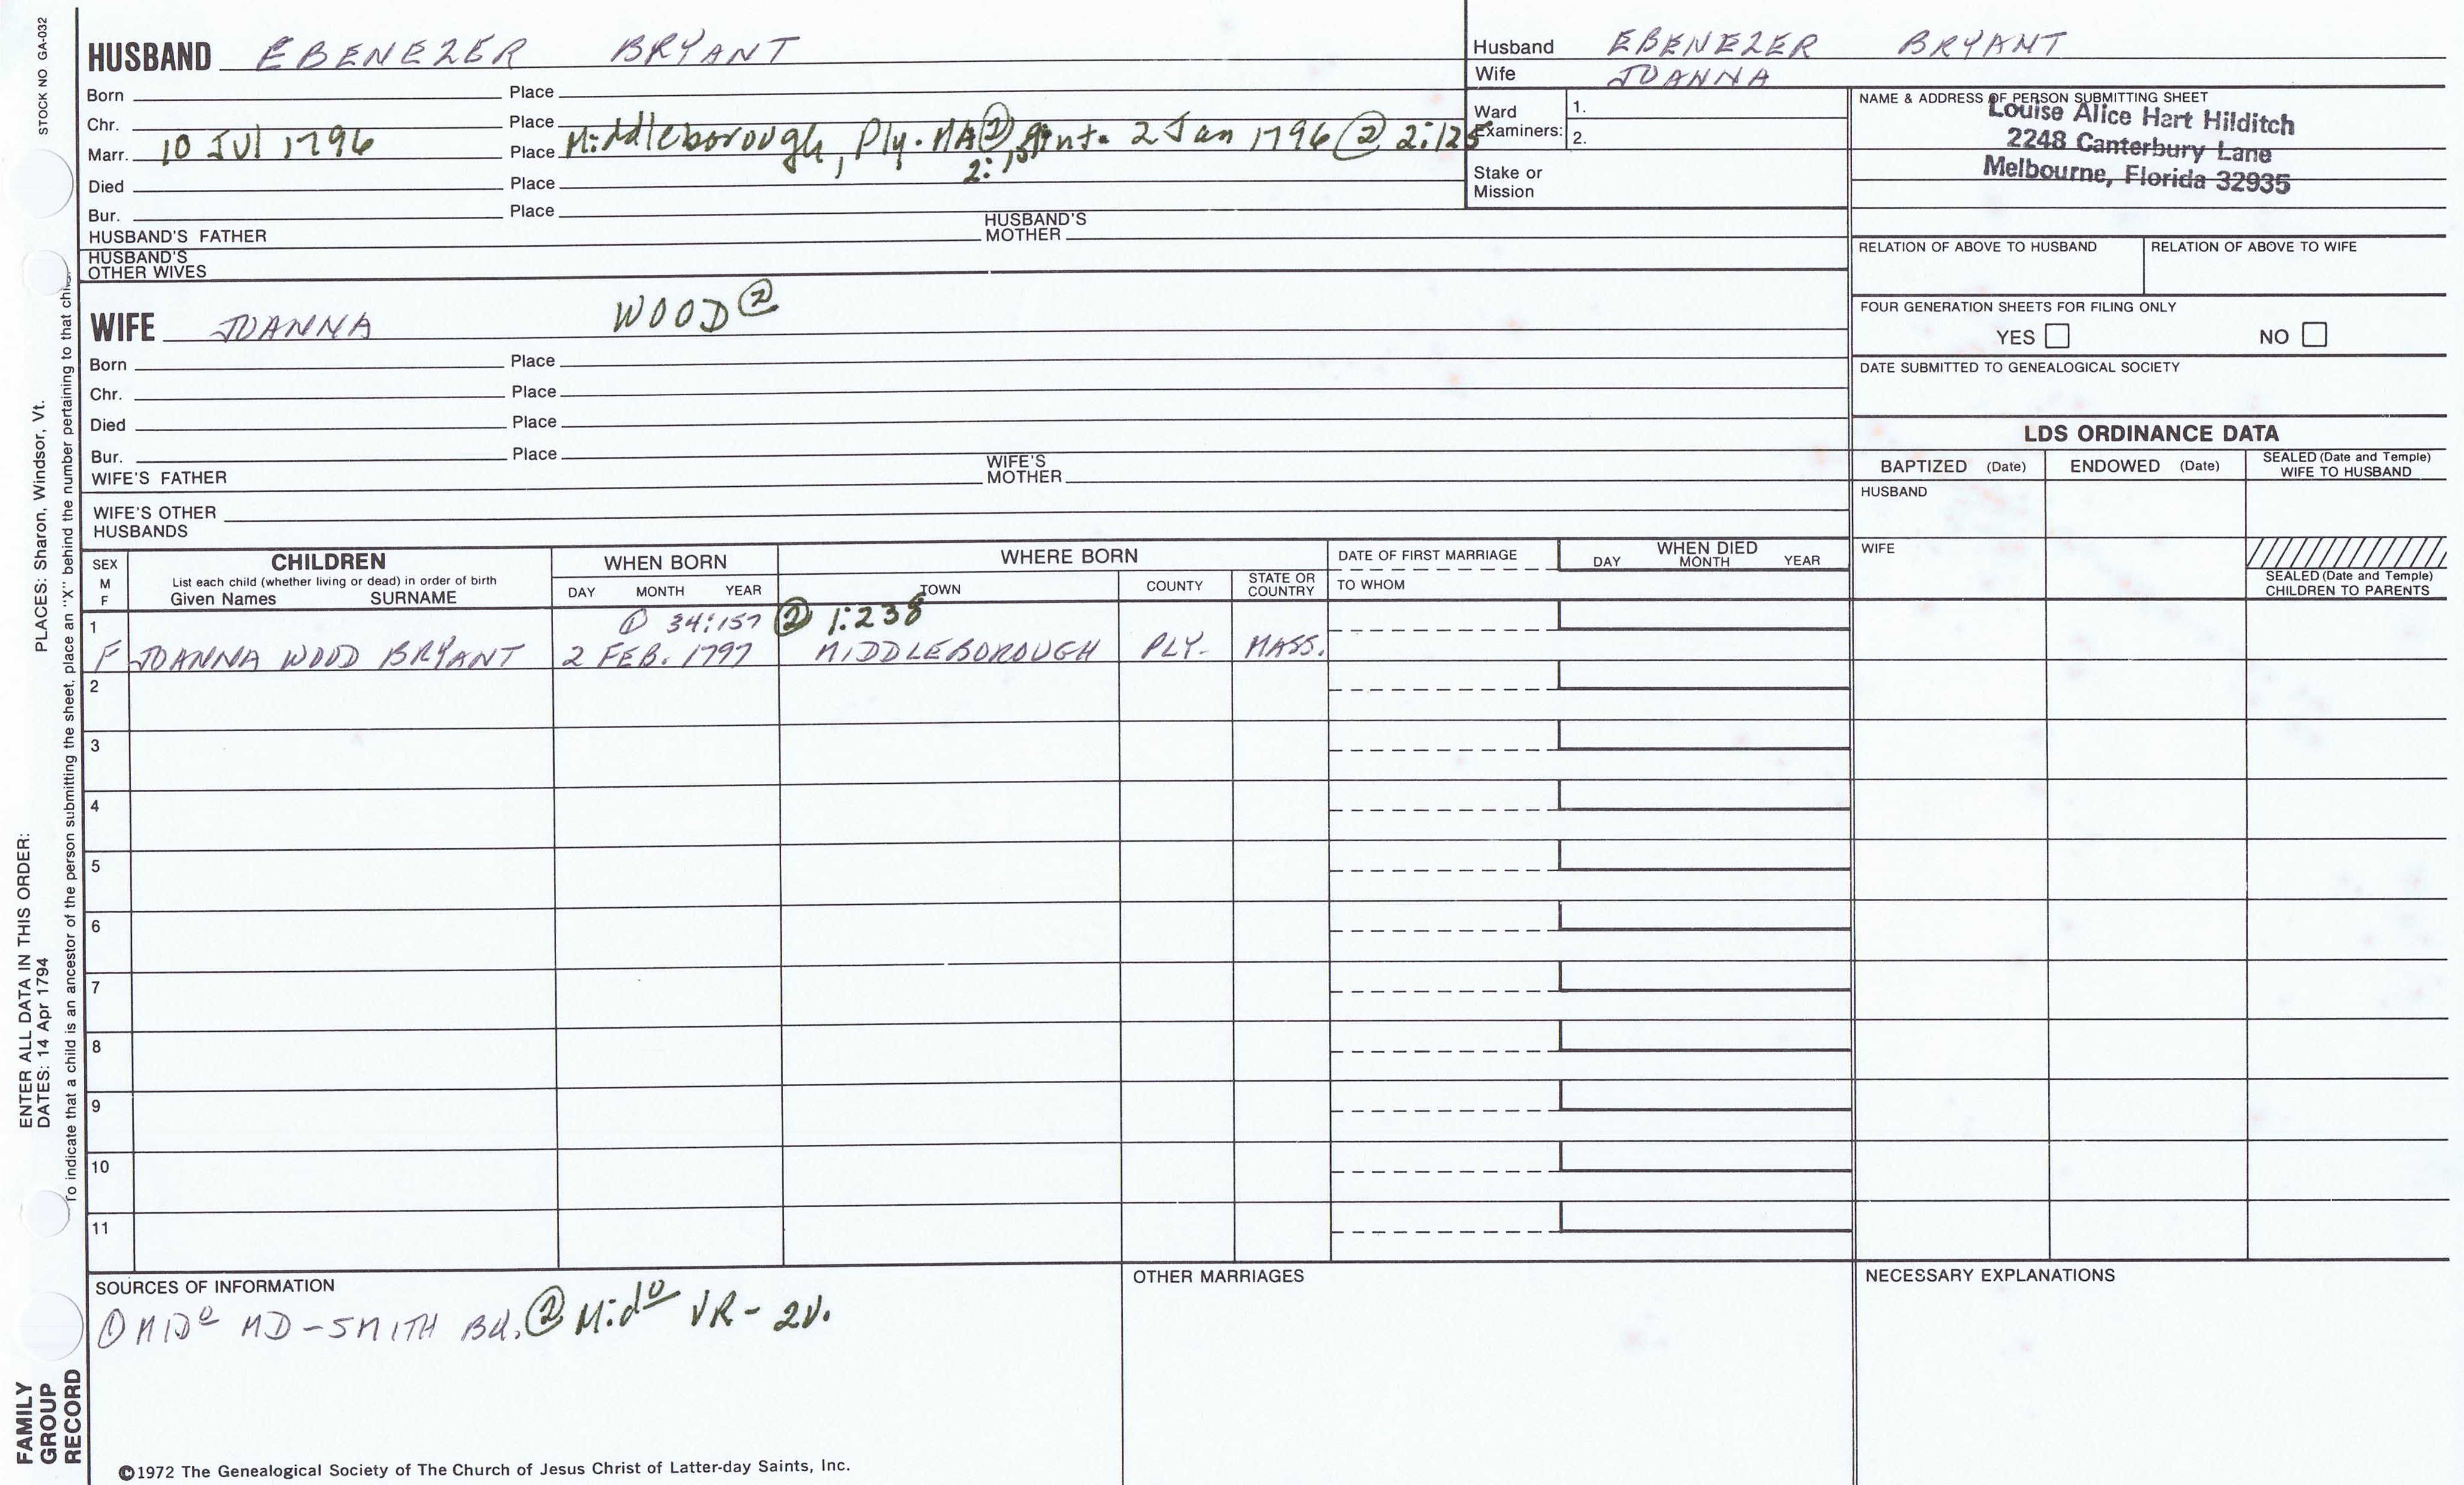 STOCK NO GA-032
HUSBAND EBENEZER BRYANT
Born Place
Chr. Place
Marr. 10 Jul 1796 Place Middleborough, Ply. MA ② 2 Jan 1796 ② 2:125
2:
Died Place
Bur. Place
HUSBAND'S FATHER HUSBAND'S MOTHER
HUSBAND'S OTHER WIVES
WIFE JOANNA WOOD ②
Born Place
Chr. Place
Died Place
Bur. Place
WIFE'S FATHER WIFE'S MOTHER
WIFE'S OTHER HUSBANDS
Husband EBENEZER BRYANT
Wife JOANNA
Ward Examiners: 1.
2.
Stake or Mission
NAME & ADDRESS OF PERSON SUBMITTING SHEET
Louise Alice Hart Hilditch
2248 Canterbury Lane
Melbourne, Florida 32935
RELATION OF ABOVE TO HUSBAND RELATION OF ABOVE TO WIFE
FOUR GENERATION SHEETS FOR FILING ONLY
YES NO
DATE SUBMITTED TO GENEALOGICAL SOCIETY
LDS ORDINANCE DATA
BAPTIZED (Date) ENDOWED (Date) SEALED (Date and Temple) WIFE TO HUSBAND
HUSBAND
WIFE
SEALED (Date and Temple) CHILDREN TO PARENTS
SEX M F
CHILDREN
List each child (whether living or dead) in order of birth
Given Names SURNAME
WHEN BORN
DAY MONTH YEAR
WHERE BORN
TOWN COUNTY STATE OR COUNTRY
DATE OF FIRST MARRIAGE
TO WHOM
WHEN DIED
DAY MONTH YEAR
1 ① 34:157 ② 1:238
F JOANNA WOOD BRYANT 2 FEB. 1797 MIDDLEBOROUGH PLY. MASS.
2
3
4
5
6
7
8
9
10
11
SOURCES OF INFORMATION
① MIDº MD-SMITH Bd. ② Midº VR - 2V.
OTHER MARRIAGES
NECESSARY EXPLANATIONS
©1972 The Genealogical Society of The Church of Jesus Christ of Latter-day Saints, Inc.
ENTER ALL DATA IN THIS ORDER:
DATES: 14 Apr 1794 PLACES: Sharon, Windsor, Vt.
To indicate that a child is an ancestor of the person submitting the sheet, place an "X" behind the number pertaining to that
FAMILY
GROUP
RECORD